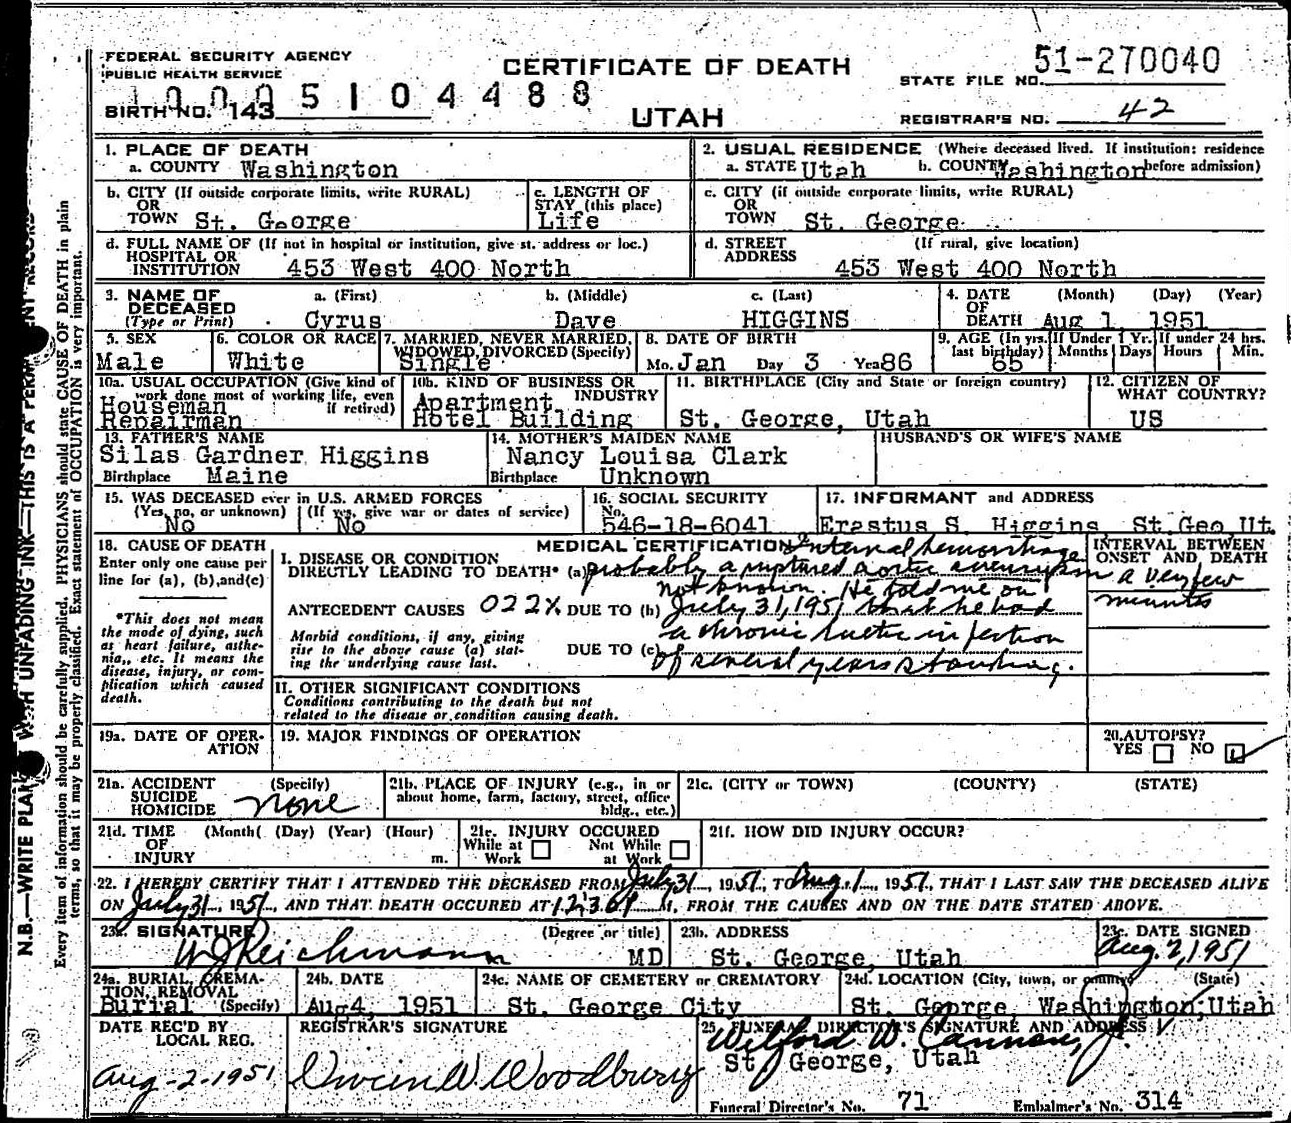 FEDERAL SECURITY AGENCY
PUBLIC HEALTH SERVICE
CERTIFICATE OF DEATH
UTAH
STATE FILE NO. 51-270040
1000 5104488
BIRTH NO. 143
REGISTRAR'S NO. 42
1. PLACE OF DEATH
a. COUNTY Washington
2. USUAL RESIDENCE (Where deceased lived. If institution: residence before admission)
a. STATE Utah b. COUNTY Washington
b. CITY (If outside corporate limits, write RURAL)
OR
TOWN St. George
c. LENGTH OF
STAY (this place)
Life
c. CITY (if outside corporate limits, write RURAL)
OR
TOWN St. George
d. FULL NAME OF (If not in hospital or institution, give st. address or loc.)
HOSPITAL OR
INSTITUTION 453 West 400 North
d. STREET (If rural, give location)
ADDRESS 453 West 400 North
3. NAME OF
DECEASED
(Type or Print)
a. (First) b. (Middle) c. (Last)
Cyrus Dave HIGGINS
4. DATE (Month) (Day) (Year)
OF
DEATH Aug 1, 1951
5. SEX
Male
6. COLOR OR RACE
White
7. MARRIED, NEVER MARRIED,
WIDOWED, DIVORCED (Specify)
Single
8. DATE OF BIRTH
Mo. Jan Day 3 Year 86
9. AGE (In yrs. last birthday) 65
If Under 1 Yr. Months Days
If under 24 hrs. Hours Min.
10a. USUAL OCCUPATION (Give kind of
work done most of working life, even
if retired)
Houseman
Repairman
10b. KIND OF BUSINESS OR
INDUSTRY
Apartment
Hotel Building
11. BIRTHPLACE (City and State or foreign country)
St. George, Utah
12. CITIZEN OF
WHAT COUNTRY?
US
13. FATHER'S NAME
Silas Gardner Higgins
Birthplace Maine
14. MOTHER'S MAIDEN NAME
Nancy Louisa Clark
Birthplace Unknown
HUSBAND'S OR WIFE'S NAME
15. WAS DECEASED ever in U.S. ARMED FORCES
(Yes, no, or unknown) (If yes, give war or dates of service)
No No
16. SOCIAL SECURITY
No.
546-18-6041
17. INFORMANT and ADDRESS
Erastus S. Higgins St.Geo Ut.
18. CAUSE OF DEATH
Enter only one cause per
line for (a), (b), and (c)
*This does not mean
the mode of dying, such
as heart failure, asthe-
nia,, etc. It means the
disease, injury, or com-
plication which caused
death.
MEDICAL CERTIFICATION
I. DISEASE OR CONDITION
DIRECTLY LEADING TO DEATH* (a)
Internal hemorrhage
probably a ruptured aortic aneurysm
not known. He told me on
ANTECEDENT CAUSES 022X DUE TO (b) July 31, 1951 that he had
a chronic luetic infection
Morbid conditions, if any, giving
rise to the above cause (a) stat-
ing the underlying cause last.
DUE TO (c) of several years standing.
INTERVAL BETWEEN
ONSET AND DEATH
a very few
minutes
II. OTHER SIGNIFICANT CONDITIONS
Conditions contributing to the death but not
related to the disease or condition causing death.
19a. DATE OF OPER-
ATION
19. MAJOR FINDINGS OF OPERATION
20. AUTOPSY?
YES NO
21a. ACCIDENT (Specify)
SUICIDE
HOMICIDE none
21b. PLACE OF INJURY (e.g., in or
about home, farm, factory, street, office
bldg., etc.)
21c. (CITY or TOWN) (COUNTY) (STATE)
21d. TIME (Month( (Day) (Year) (Hour)
OF
INJURY m.
21e. INJURY OCCURED
While at Work Not While at Work
21f. HOW DID INJURY OCCUR?
22. I HEREBY CERTIFY THAT I ATTENDED THE DECEASED FROM July 31, 1951, TO Aug. 1, 1951, THAT I LAST SAW THE DECEASED ALIVE
ON July 31, 1951, AND THAT DEATH OCCURED AT M, FROM THE CAUSES AND ON THE DATE STATED ABOVE.
23a. SIGNATURE (Degree or title)
W J Reichmann MD
23b. ADDRESS
St. George, Utah
23c. DATE SIGNED
Aug. 2, 1951
24a. BURIAL, CREMA-
TION, REMOVAL
Burial (Specify)
24b. DATE
Aug 4, 1951
24c. NAME OF CEMETERY or CREMATORY
St. George City
24d. LOCATION (City, town, or county) (State)
St. George, Washington, Utah
DATE REC'D BY
LOCAL REG.
Aug-2-1951
REGISTRAR'S SIGNATURE
Vivian W. Woodbury
25. FUNERAL DIRECTOR'S SIGNATURE AND ADDRESS
Wilford W. Cannon, Jr.
St. George, Utah
Funeral Director's No. 71 Embalmer's No. 314
N.B.—WRITE PLAINLY WITH UNFADING INK—THIS IS A PERMANENT RECORD
Every item of information should be carefully supplied. PHYSICIANS should state CAUSE OF DEATH in plain
terms, so that it may be properly classified. Exact statement of OCCUPATION is very important.